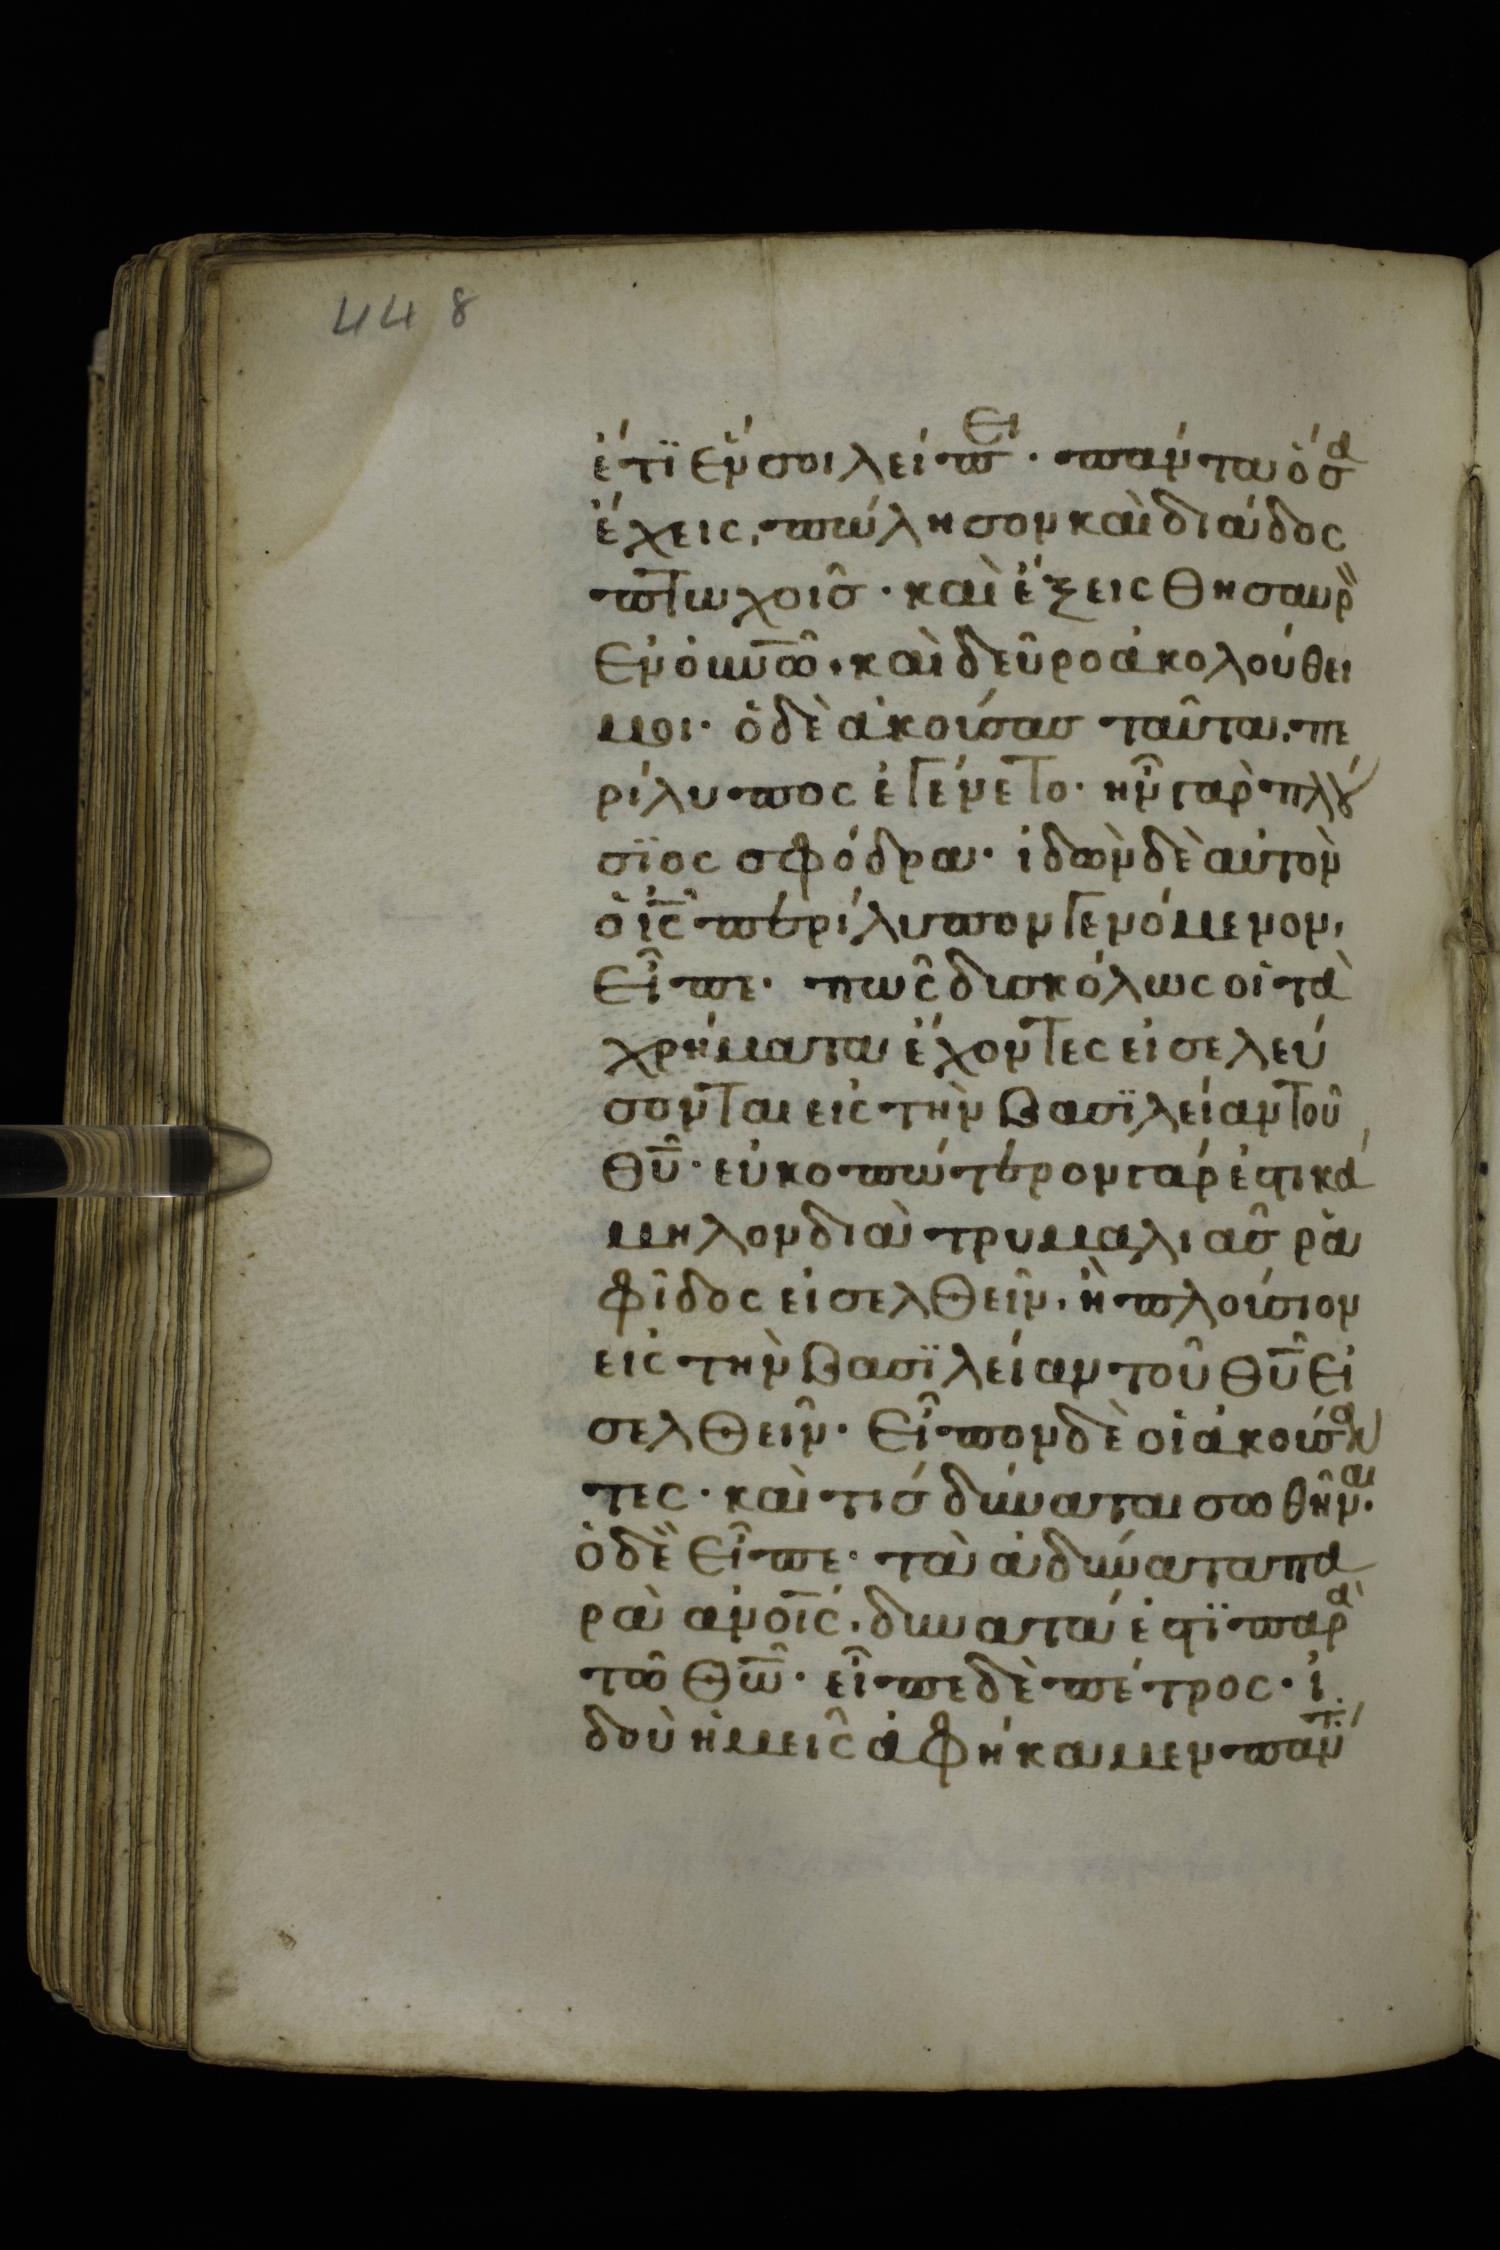 448
ἔτϊ ἕν σοι λείπει · πάντα ὅσα
ἔχεις, πώλησον καὶ διάδος
πτωχοῖς · καὶ ἕξεις θησαυρὸ
ἐν ὀυνῶ · καὶ δεῦρο ἀκολούθει
μοι · ὁ δὲ ἀκούσας ταῦτα, πε
ρίλυπος ἐγένετο · ἦν γὰρ πλού
σϊος σφόδρα · ἰδὼν δὲ αὐτὸν
ὁ ις περίλυπον γενόμενον,
εἶπε · πῶς δυσκόλως οἱ τὰ
χρήματα ἔχοντες εἰσελεύ
σονται εἰς τὴν βασϊλείαν τοῦ
θυ · εὐκοπώτερον γάρ ἐστι κά
μηλον διὰ τρυμαλιᾶς ρα
φίδος εἰσελθεῖν, ἢ πλούσιον
εἰς τὴν βασϊλείαν τοῦ θυ εἰ
σελθεῖν · εἶπον δὲ οἱ ἀκούσαν
τες · καὶ τίς δύναται σωθῆναι ·
ὁ δὲ εἶπε · τὰ ἀδύνατα πα
ρὰ ανοις, δυνατά ἐστϊ παρὰ
τῶ θω · εἶπε δὲ πέτρος · ἰ
δοὺ ἡμεῖς ἀφήκαμεν πάντ